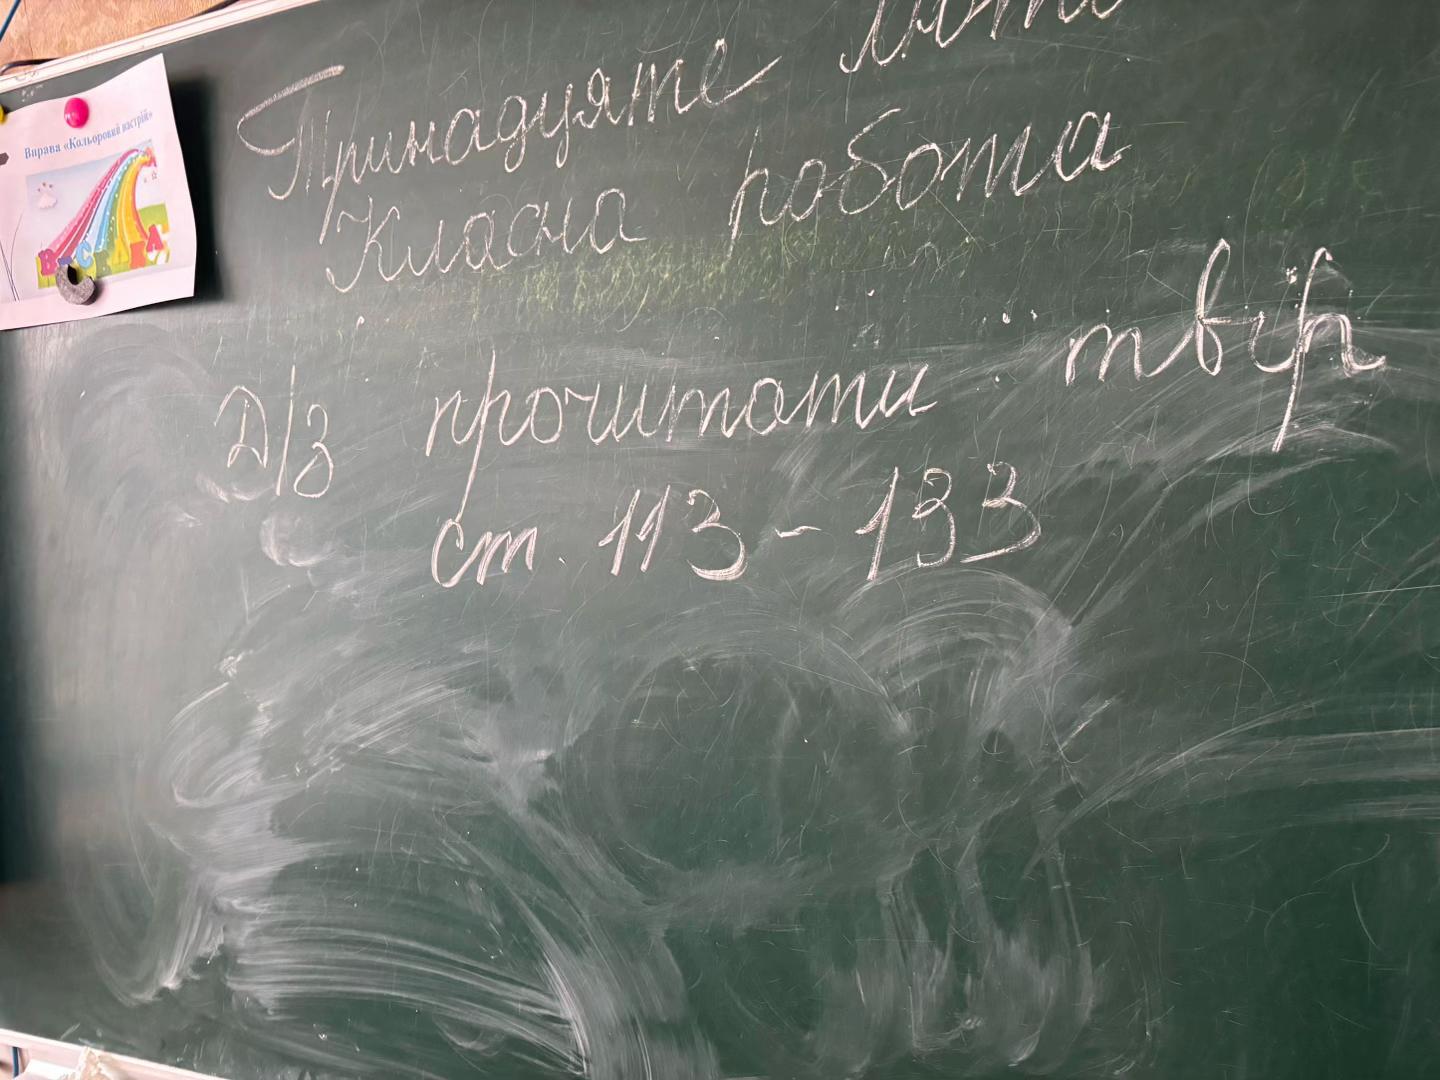 Тринадцяте люто
Класна робота
Д/з прочитати твір
ст. 113-133
Вправа «Кольоровий настрій»
ВЕСЕЛКА